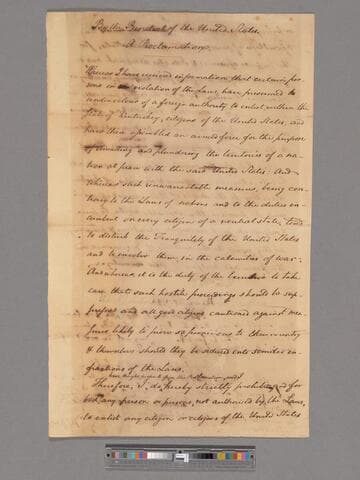 By the President of the United States.
A Proclamation.
Whereas I have received information that certain per
sons in violation of the Laws, have presumed
under colour of a foreign authority to enlist within the
State of Kentucky, citizens of the United States, and
have there assembled an armed force for the purpose
of invading and plundering the territories of a na
tion at peace with the said United States. And
whereas such unwarrantable measures, being con
trary to the Laws of nations and to the duties in
cumbent on every citizen of a neutral state, tend
to disturb the Tranquility of the United States
and to involve them in the calamities of war.
And whereas it is the duty of the Executive to take
care that such hostile proceedings should be sup
pressed and all good citizens cautioned against mea
sures likely to prove so pernicious to their country
& themselves should they be seduced into similar in
fractions of the Laws.
have thought proper to issue this Proclamation
Therefore, I, do, hereby strictly prohibit and for
bid, any person or persons, not authorised by the Laws,
to enlist any citizen or citizens of the United States